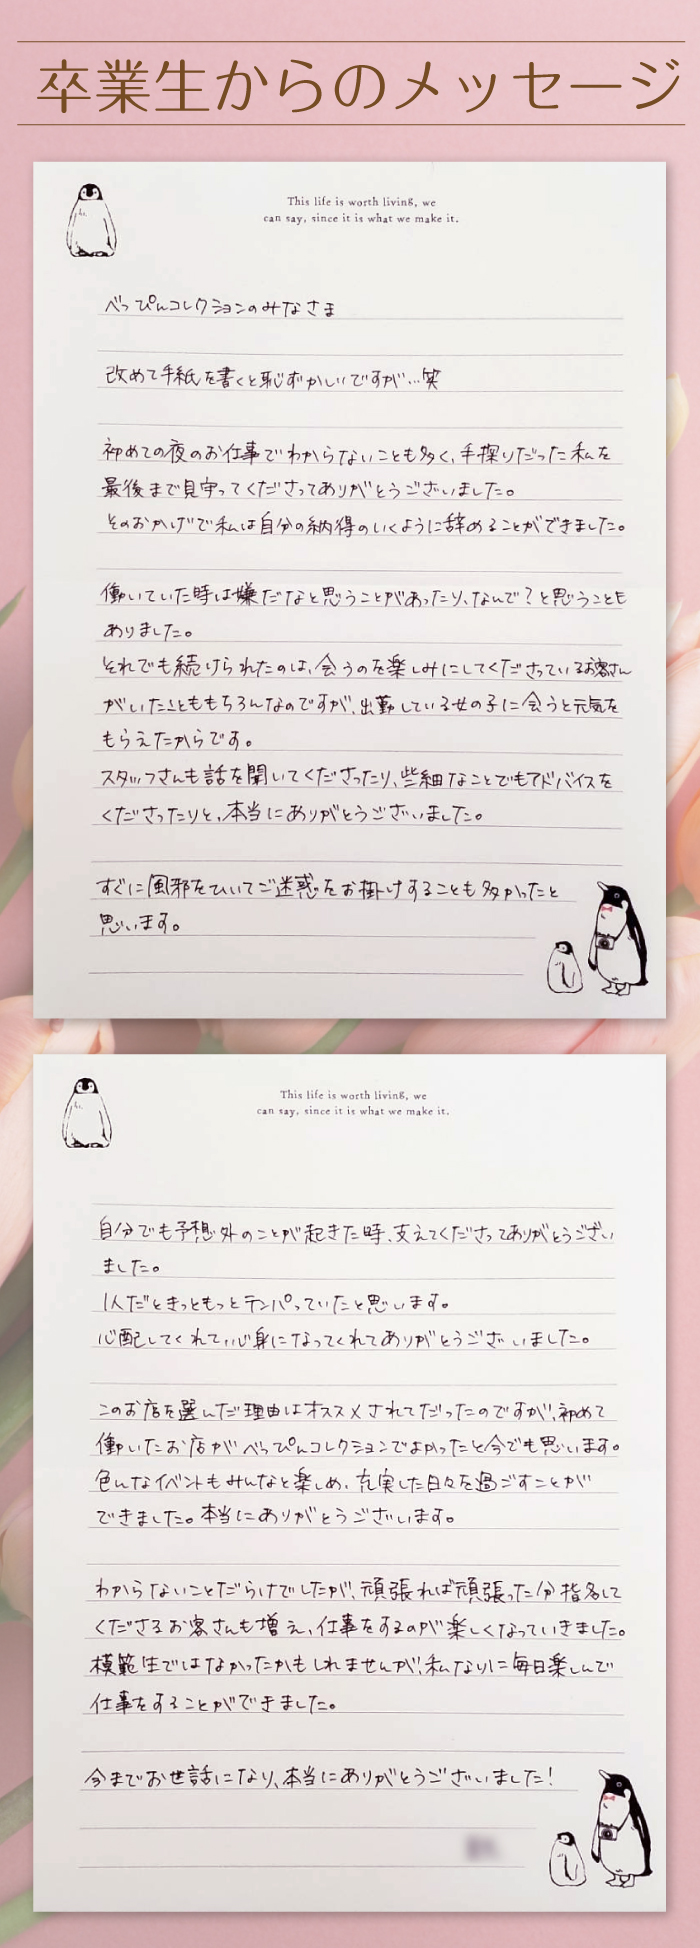 卒業生からのメッセージ
This life is worth living, we
can say, since it is what we make it.
べっぴんコレクションのみなさま
改めて手紙を書くと恥ずかしいですが…笑
初めての夜のお仕事でわからないことも多く、手探りだった私を
最後まで見守ってくださってありがとうございました。
そのおかげで私は自分の納得のいくように辞めることができました。
働いていた時は嫌だなと思うことがあったり、なんで？と思うことも
ありました。
それでも続けられたのは、会うのを楽しみにしてくださっているお客さん
がいたこともももちろんなのですが、出勤している女の子に会うと元気を
もらえたからです。
スタッフさんも話を聞いてくださったり、些細なことでもアドバイスを
くださったりと、本当にありがとうございました。
すぐに風邪をひいてご迷惑をお掛けすることも多かったと
思います。
This life is worth living, we
can say, since it is what we make it.
自分でも予想外のことが起きた時、支えてくださってありがとうござい
ました。
1人だときっともっとテンパっていたと思います。
心配してくれて、心身になってくれてありがとうございました。
このお店を選んだ理由はオススメされてだったのですが、初めて
働いたお店がべっぴんコレクションでよかったと今でも思います。
色んなイベントもみんなと楽しめ、充実した日々を過ごすことが
できました。本当にありがとうございます。
わからないことだらけでしたが、頑張れば頑張った分指名して
くださるお客さんも増え、仕事をするのが楽しくなっていきました。
模範生ではなかったかもしれませんが、私なりに毎日楽しんで
仕事をすることができました。
今までお世話になり、本当にありがとうございました！